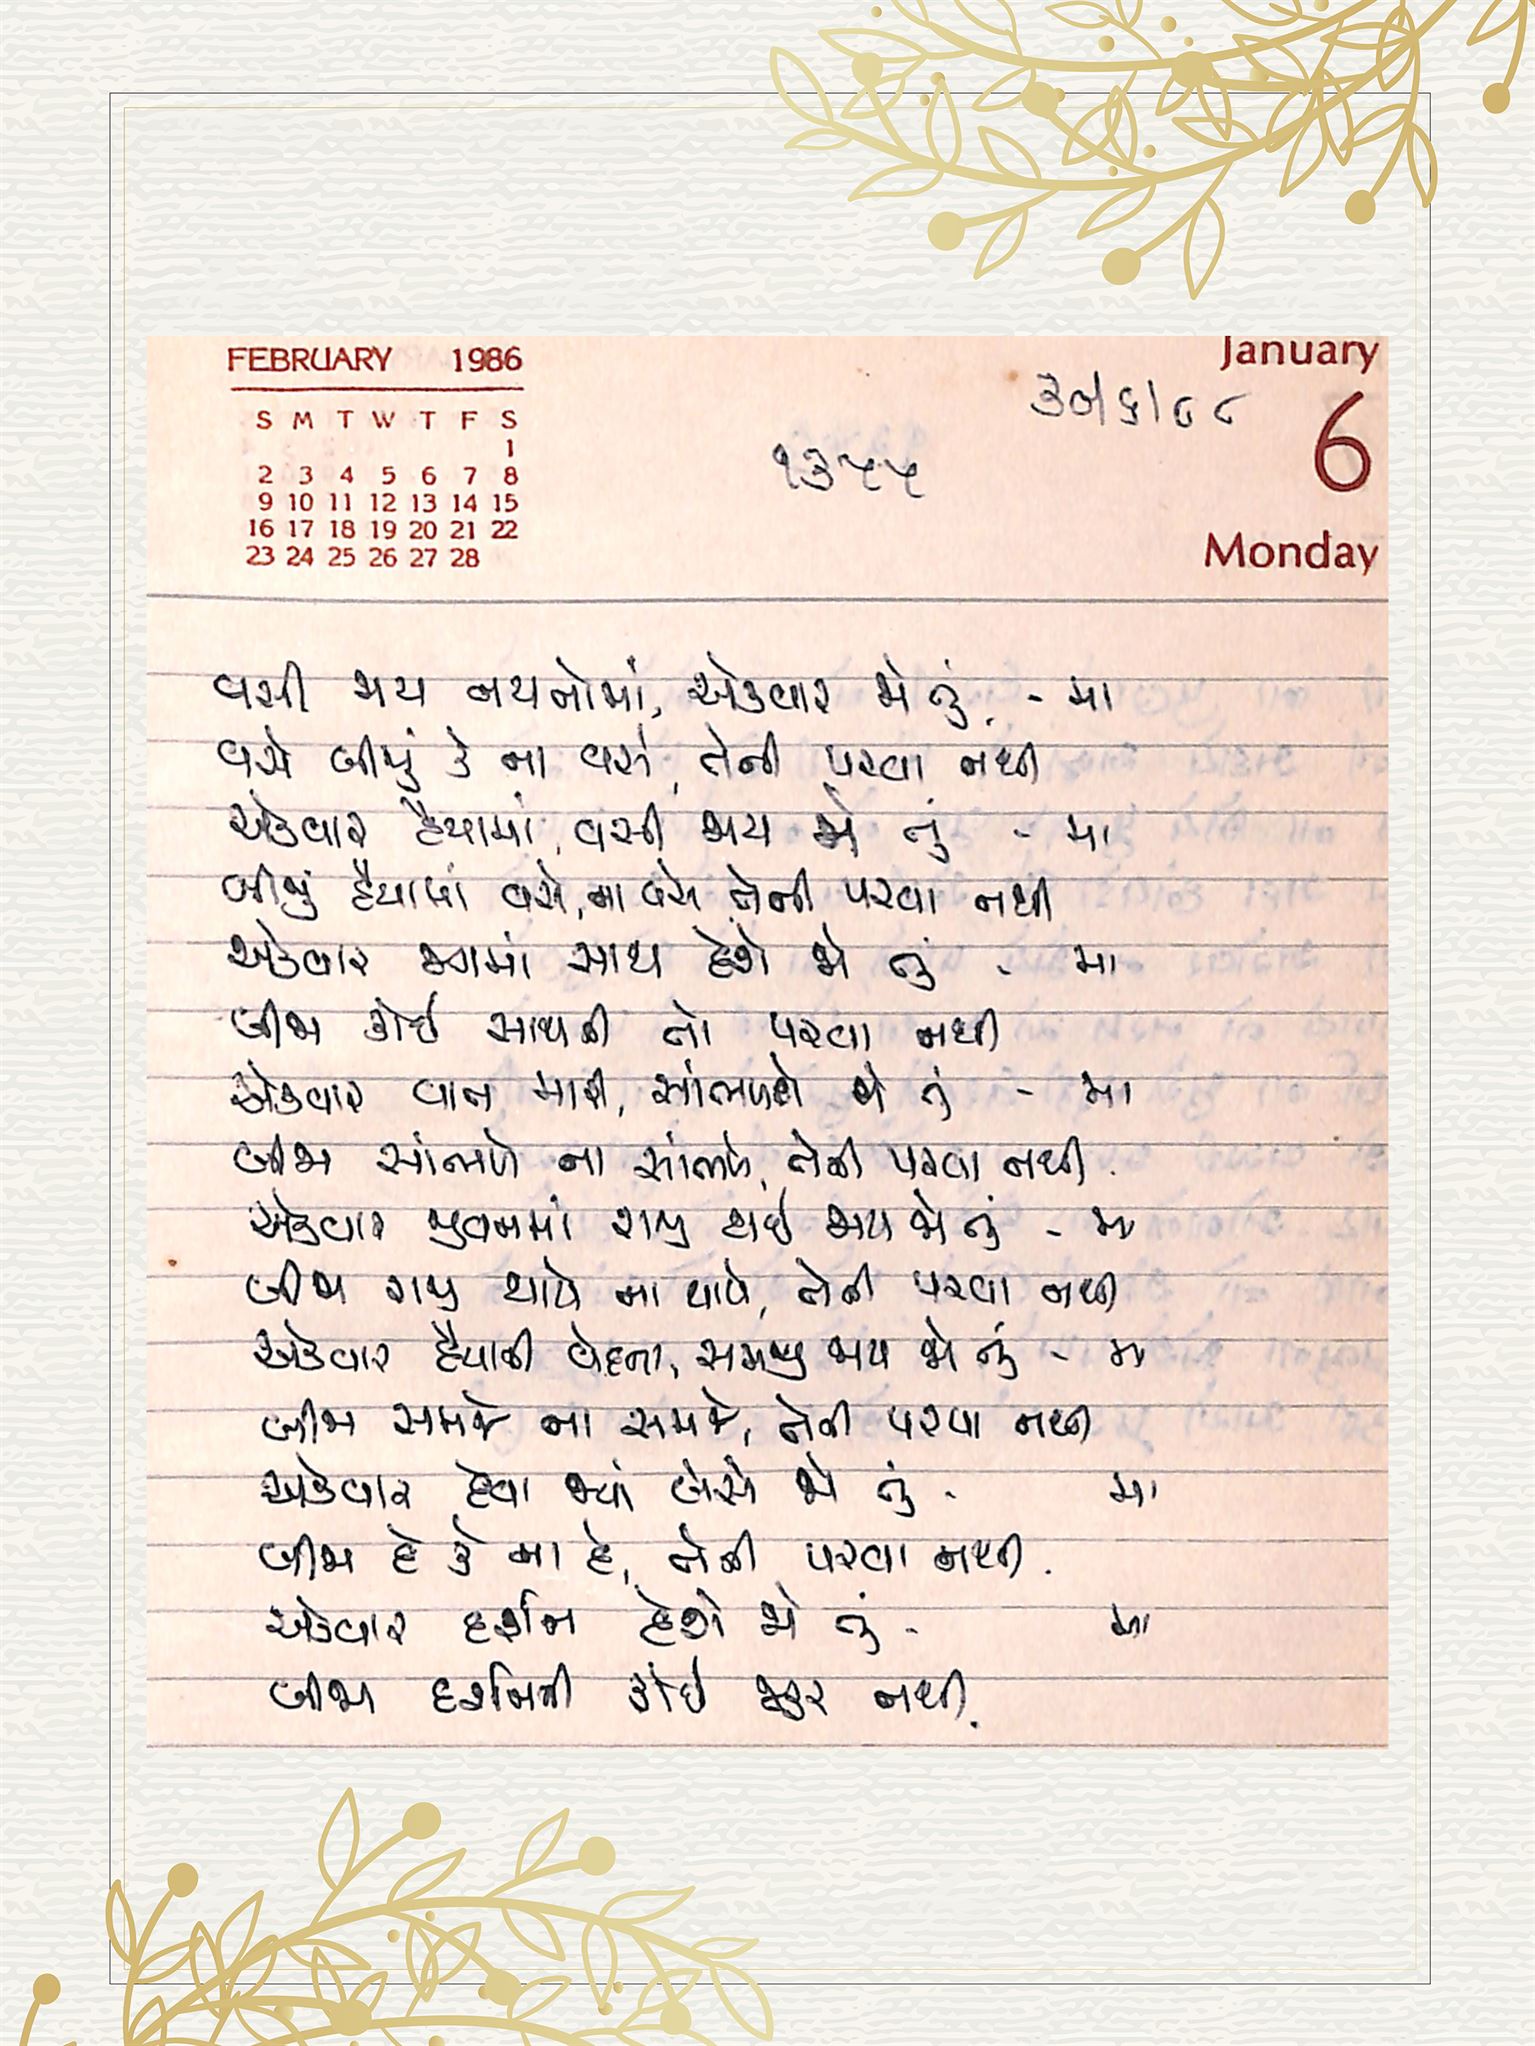 FEBRUARY 1986
S M T W T F S
1
2 3 4 5 6 7 8
9 10 11 12 13 14 15
16 17 18 19 20 21 22
23 24 25 26 27 28
January
6
Monday
૩૦/૬/૮૮
૧૩૫૫
વસી જાય નયનોમાં, એકવાર જો તું. - મા
વસે બીજું કે ના વસે, તેની પરવા નથી
એકવાર હૈયામાં, વસી જાય જો તું - મા
બીજું હૈયામાં વસે, ના વસે તેની પરવા નથી
એકવાર જગમાં સાથ દેશે જો તું - મા
બીજા કોઈ સાથની તો પરવા નથી
એકવાર વાત મારી, સાંભળશે જો તું - મા
બીજા સાંભળે ના સાંભળે, તેની પરવા નથી.
એકવાર જીવનમાં રાજી થઈ જાય જો તું - મા
બીજા રાજી થાયે ના થાયે, તેની પરવા નથી
એકવાર હૈયાની વેદના, સમજી જાય જો તું - મા
બીજા સમજે ના સમજે, તેની પરવા નથી
એકવાર દેવા જ્યાં બેસે જો તું - મા
બીજા દે કે ના દે, તેની પરવા નથી.
એકવાર દર્શન દેશે જો તું - મા
બીજા દર્શનની કોઈ જરૂર નથી.